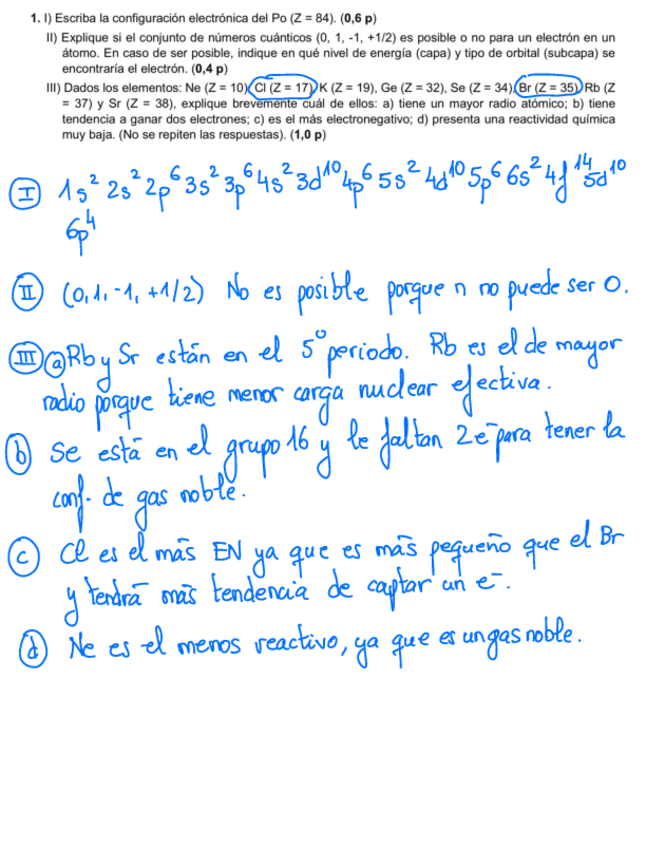 1. I) Escriba la configuración electrónica del Po (Z = 84). (0,6 p)
II) Explique si el conjunto de números cuánticos (0, 1, -1, +1/2) es posible o no para un electrón en un
átomo. En caso de ser posible, indique en qué nivel de energía (capa) y tipo de orbital (subcapa) se
encontraría el electrón. (0,4 p)
III) Dados los elementos: Ne (Z = 10), Cl (Z = 17), K (Z = 19), Ge (Z = 32), Se (Z = 34), Br (Z = 35), Rb (Z
= 37) y Sr (Z = 38), explique brevemente cuál de ellos: a) tiene un mayor radio atómico; b) tiene
tendencia a ganar dos electrones; c) es el más electronegativo; d) presenta una reactividad química
muy baja. (No se repiten las respuestas). (1,0 p)
I 1s² 2s² 2p⁶ 3s² 3p⁶ 4s² 3d¹⁰ 4p⁶ 5s² 4d¹⁰ 5p⁶ 6s² 4f¹⁴ 5d¹⁰
6p⁴
II (0, 1, -1, +1/2) No es posible porque n no puede ser 0.
III a Rb y Sr están en el 5º periodo. Rb es el de mayor
radio porque tiene menor carga nuclear efectiva.
b Se está en el grupo 16 y le faltan 2e⁻ para tener la
conf. de gas noble.
c Cl es el más EN ya que es más pequeño que el Br
y tendrá más tendencia de captar un e⁻.
d Ne es el menos reactivo, ya que es un gas noble.